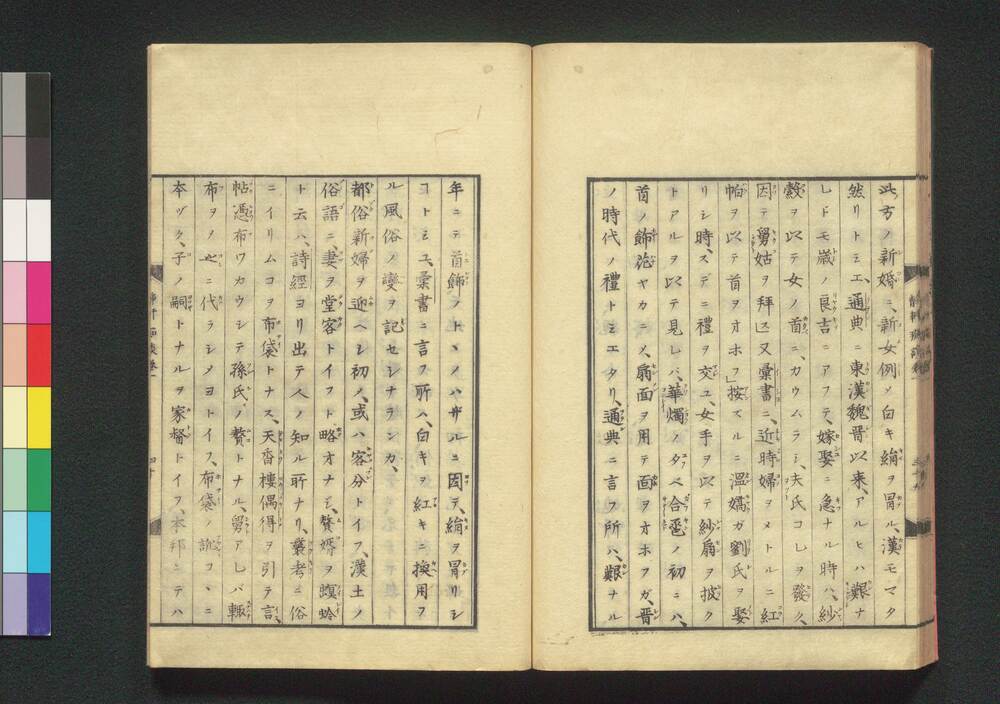 此方ノ新婚ニ、新女例メ白キ絹ヲ冒ル、漢モマタ
然リトミエ、通典ニ東漢魏晋以来、アルヒハ艱ナ
レドモ歳ノ良吉ニアフテ、嫁娶ニ急ナル時ハ、紗
縠ヲ以テ女ノ首ニ、カウムラシ、夫氏コレヲ發ク、
因テ舅姑ヲ拜ス又彙書ニ、近時婦ヲメトルニ紅
帕ヲ以テ首ヲオホフ」按ズルニ溫嬌ガ劉氏ヲ娶
リシ時、スデニ禮ヲ交ユ、女手ヲ以テ紗扇ヲ披ク
トアルヲ以テ見レバ、華燭ノタベ合巹ノ初ニハ、
首ノ飾花ヤカニメ、扇面ヲ用テ面ヲオホフガ、晋
ノ時代ノ禮トミエタリ、通典ニ言フ所ハ、艱ナル
年ニテ首飾ノトヽノハザルニ因テ、絹ヲ冒リシ
コトミユ、彙書ニ言フ所ハ、白キヲ紅キニ換用フ
ル風俗ノ變ヲ記セシナランカ、
都俗新婦ヲ迎ヘシ初メ、或ハ客分トイフ、漢土ノ
俗語ニ、妻ヲ堂客トイフト略オナシ、贅婿ヲ螟蛉
ト云ハ、詩經ヨリ出テ人ノ知ル所ナリ、囊考ニ俗
ニイリムコヲ布袋トナス、天香樓偶得ヲ引テ言、
帖憑布ワカウシテ孫氏ノ贅トナル、舅アレバ輙
布ヲノ之ニ代ラシメヨトイフ、布袋ノ訛コヽニ
本ヅク、子ノ嗣トナルヲ家督トイフ、本邦ニテハ